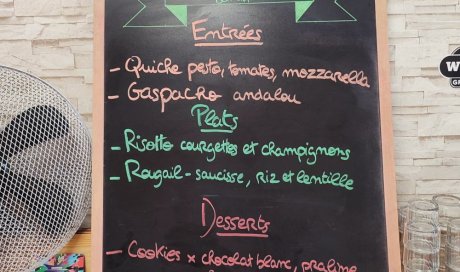 Entrées
- Quiche pesto, tomates, mozzarella
- Gaspacho andalou
Plats
- Risotto courgettes et champignons
- Rougail-saucisse, Riz et lentille
Desserts
- Cookies x chocolat blanc, praline